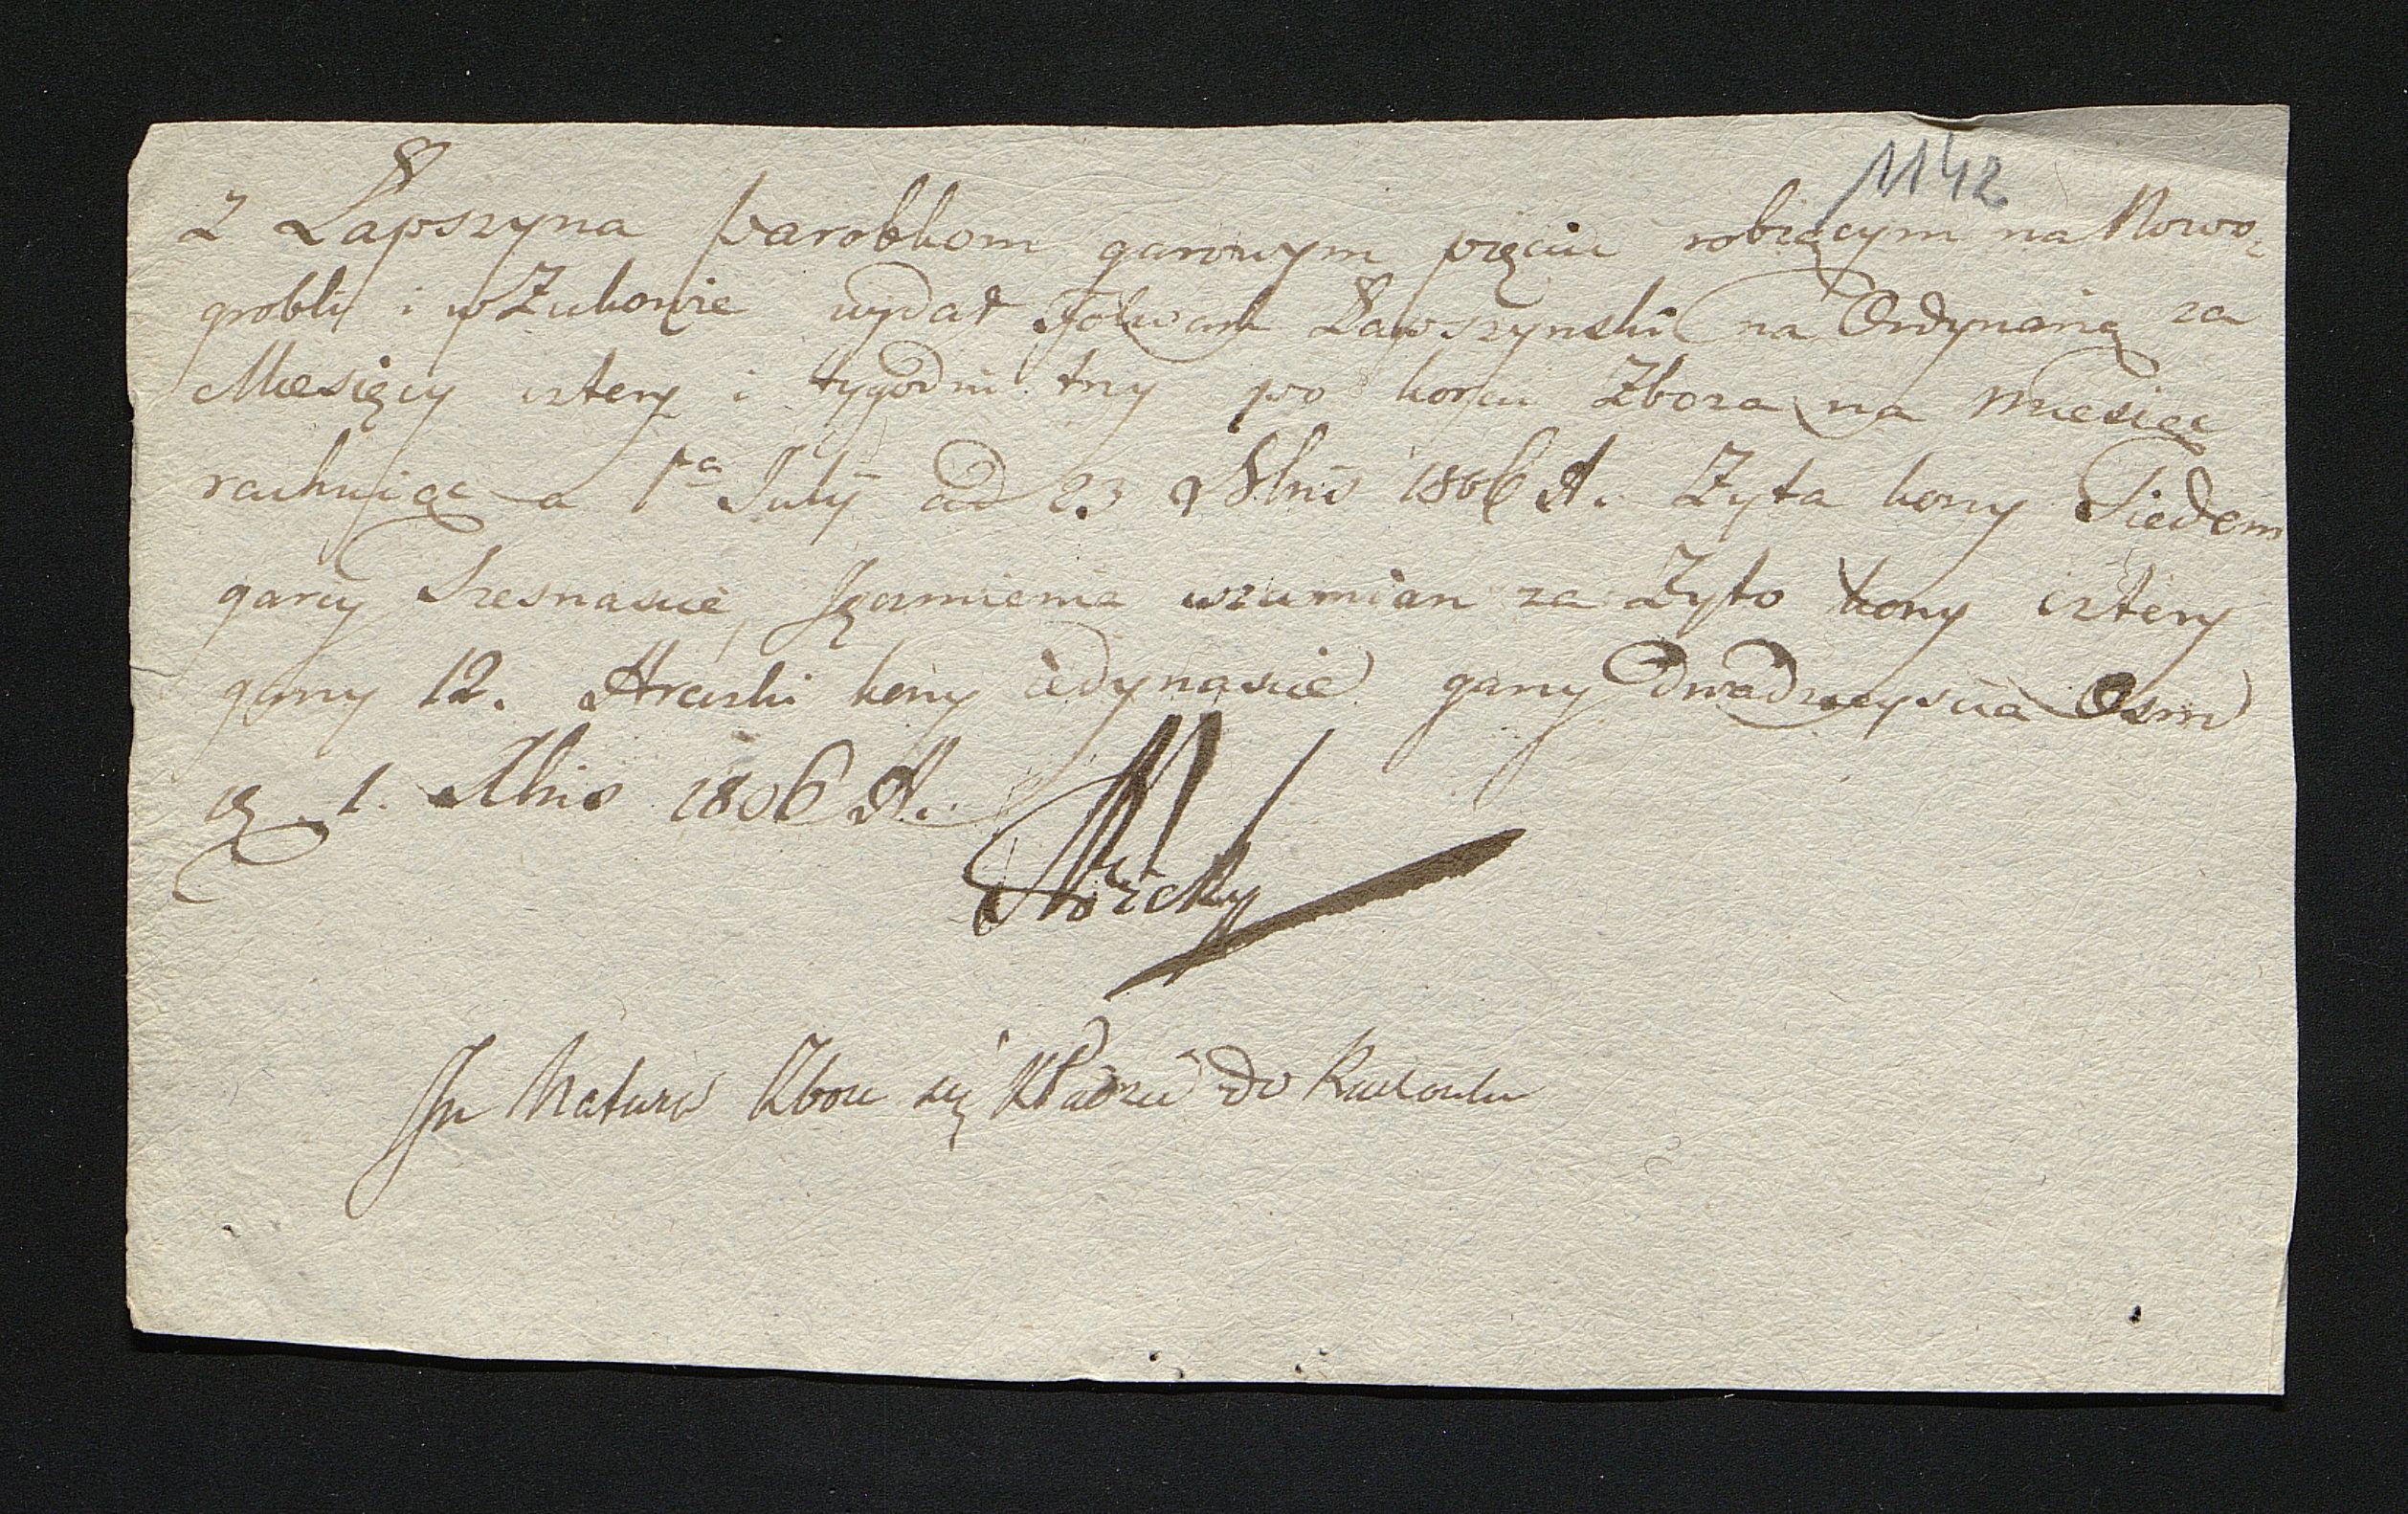 1142
Z Łapszyna parobkom garowym pięciu robiącym na Nowo-
grobly i w Zukowie wydał Folwark Łapszynski na Ordynarię za
Miesięcy cztery i tygodni trzy po korcu Zboza na miesiąc
rachuiąc a 1ma July ad 23 9bris 1806 A. Zyta korcy Siedem
garcy Szesnascie, Jęczmienia w zamian za Zyto korcy cztery
garcy 12. Hreczki korcy iedynascie garcy dwadziescia Osm
1. Xbris 1806 A.
In Natura Zboze się kładzie do